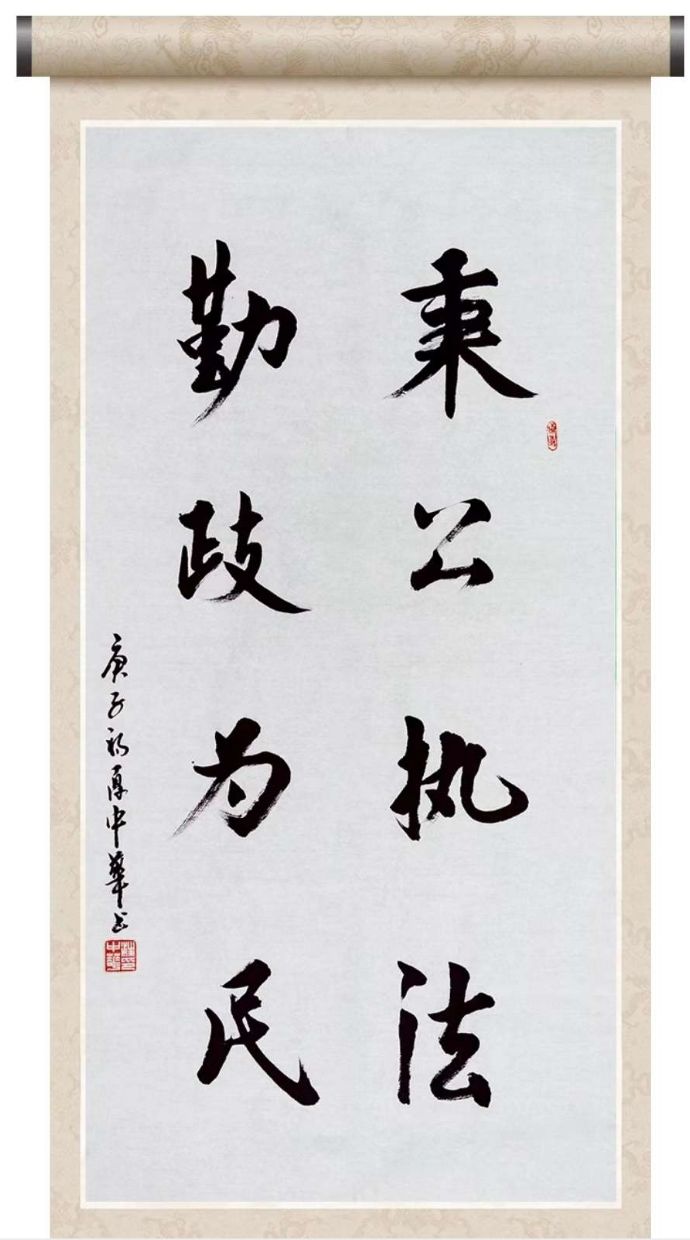 秉公执法
勤政为民
庚子初夏中華书